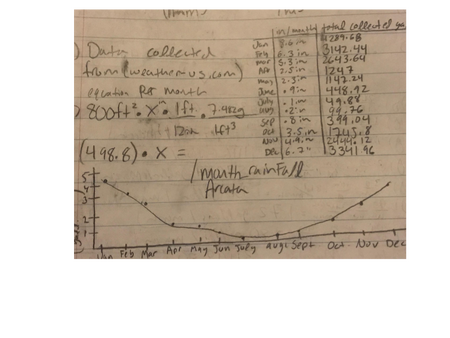 in/month total collected
Data collected
from (weather-us.com)
equation per month
800ft² • X in • 1ft • 7.48g
12in ft³
(498.8) • X =
Jan 8.6 in 4289.68
Feb 6.3 in 3142.44
Mar 5.3 in 2643.64
2.5 in 1247
May 2.3 in 1147.24
June .9 in 448.92
July .1 in 49.88
.2 in 99.76
Sep .8 in 399.04
Oct 3.5 in 1745.8
Nov 4.9 in 2444.12
Dec 6.7 3341.96
/month rainfall
Arcata
5
4
3
2
1
Jan Feb Mar Apr May Jun July Aug Sept Oct Nov Dec